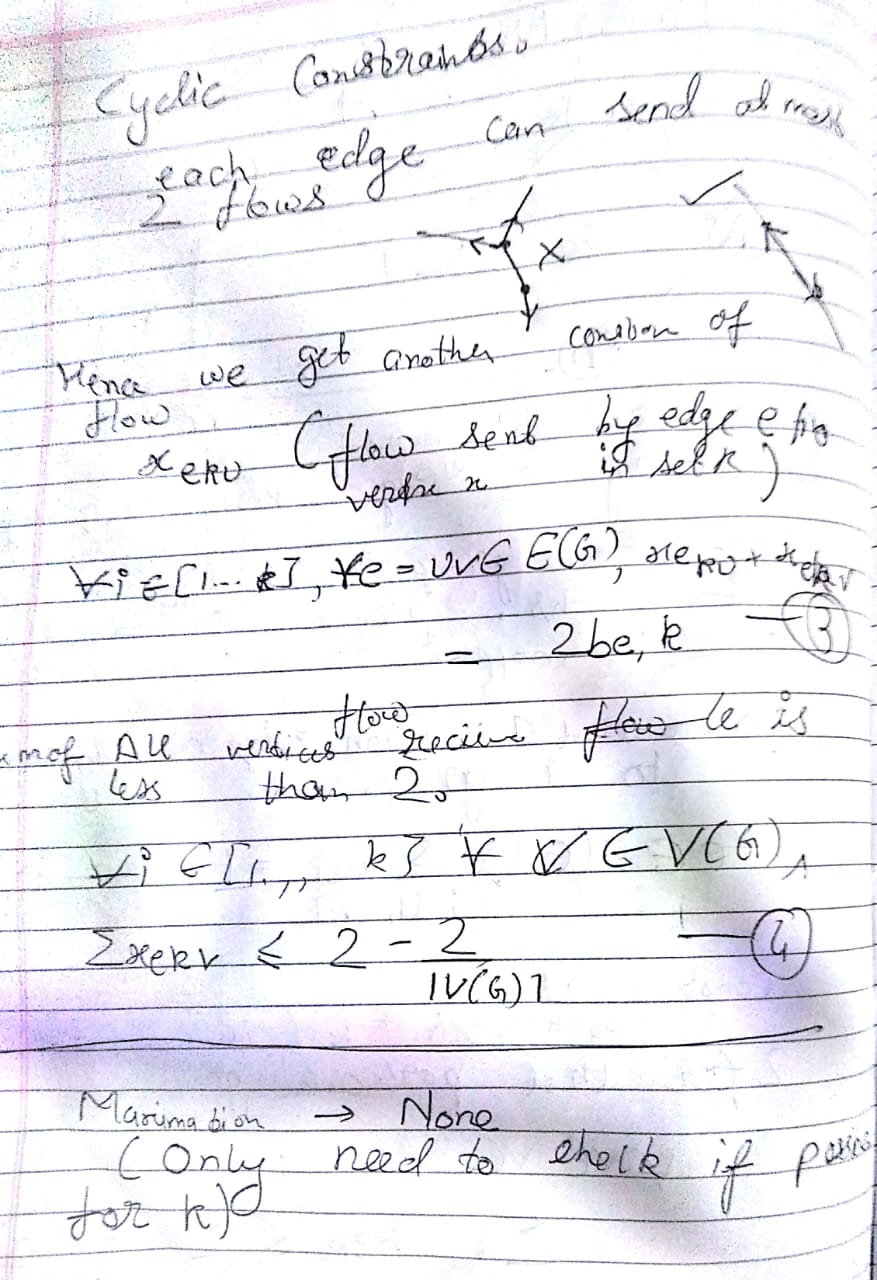 Cyclic Constraints.
each edge can send at most
2 flows
X
Hence we get another of
flow
xeku (flow sent by edge e to
vertex in set k)
∀i ∈ [1... k], ∀e = uv ∈ E(G), xeku + xekv
= 2be, k — ③
flow
All vertices recieve flow le is
less than 2.
∀i ∈ [1,,, k] ∀ v ∈ V(G),
Σxekv ≤ 2 - 2 — ④
|V(G)|
Maximation → None
(Only need to check if
for k)